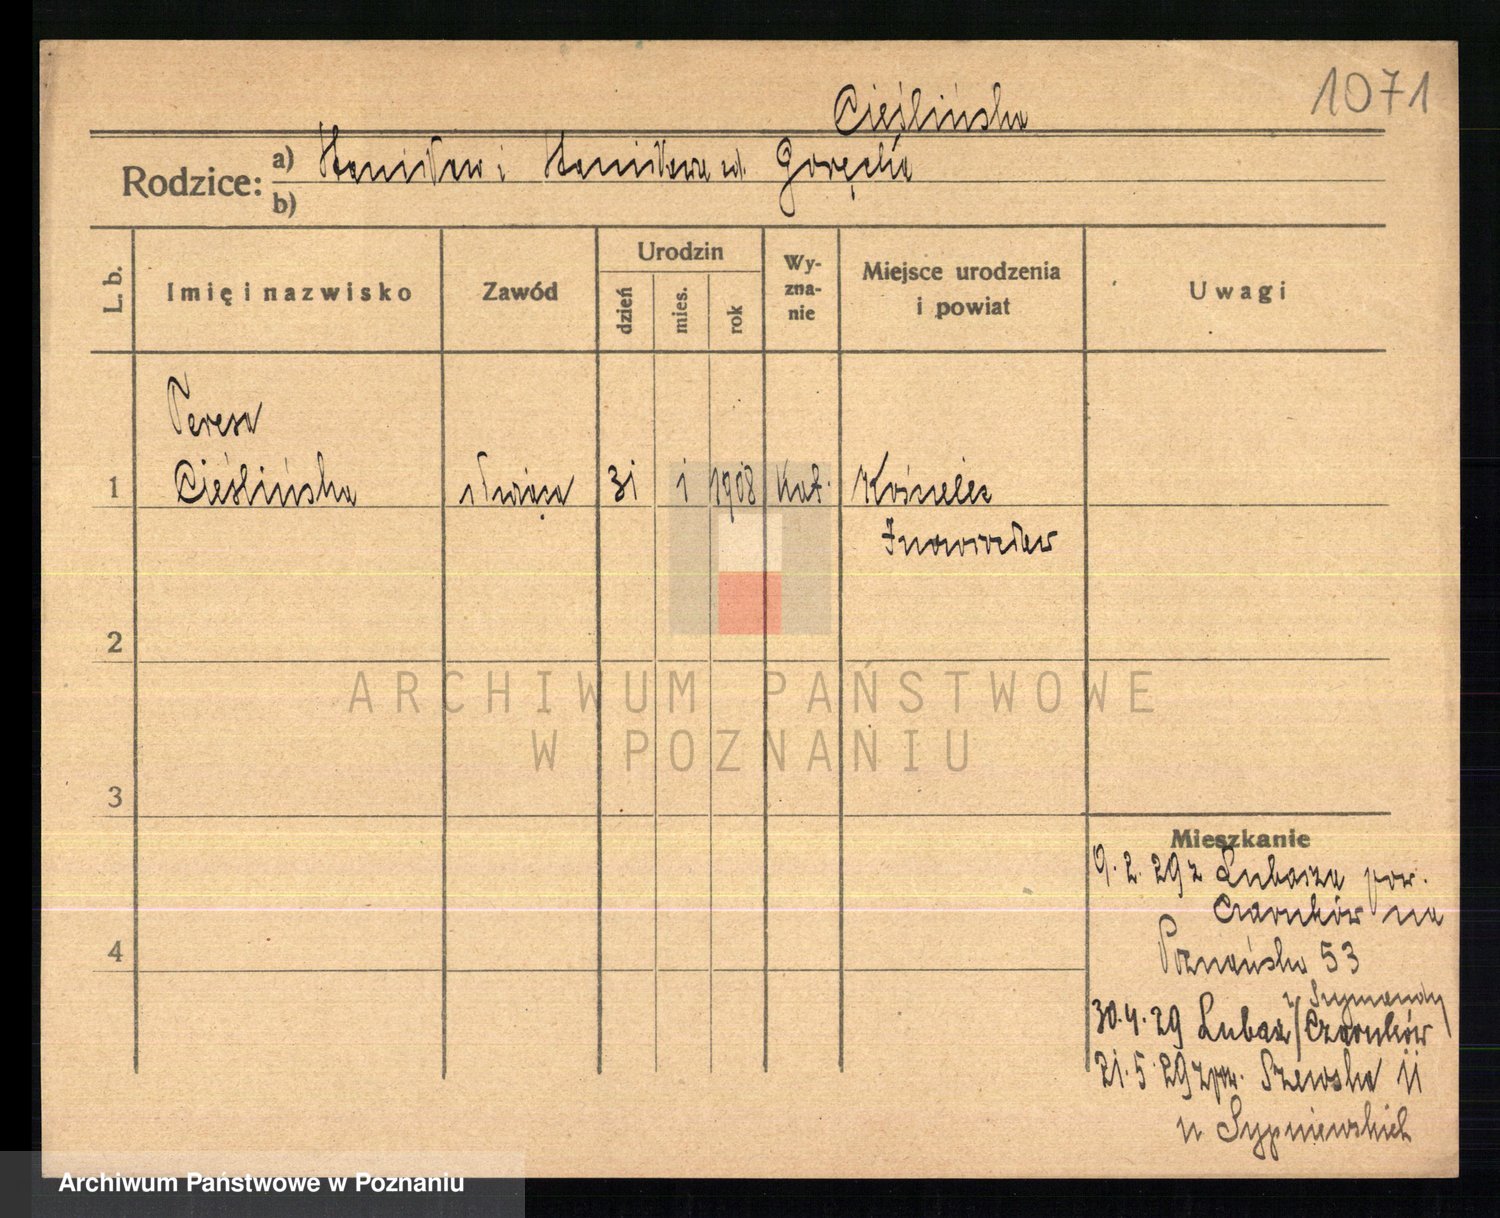 1071
Cieślińska
Rodzice: a) Stanisław i Stanisława ud. Goręcka
b)
L. b. Imię i nazwisko Zawód Urodzin dzień mies. rok Wyznanie Miejsce urodzenia i powiat Uwagi
Teresa
1 Cieślińska służąca 31 1 1908 Kat. Kościelec
Inowrocław
2
3
4
Mieszkanie
9. 2. 29 z Lubasza pow.
Czarnków na
Poznańska 53
u Szymandy
30. 4. 29 Lubasz / Czarnków
21. 5. 29 z pow. Szewska 11
u Sypniewskich
ARCHIWUM PAŃSTWOWE
W POZNANIU
Archiwum Państwowe w Poznaniu